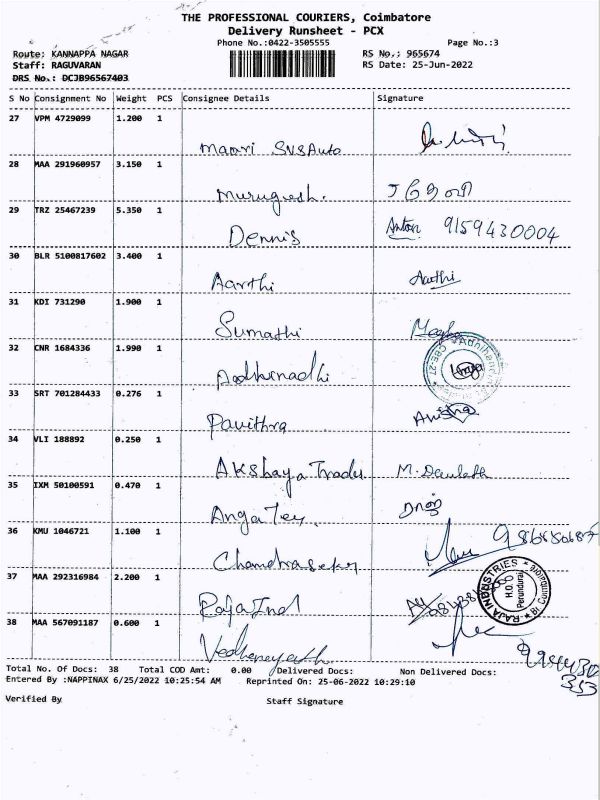 THE PROFESSIONAL COURIERS, Coimbatore
Delivery Runsheet - PCX
Phone No.:0422-3505555 Page No.:3
Route: KANNAPPA NAGAR RS No.; 965674
Staff: RAGUVARAN RS Date: 25-Jun-2022
DRS No.: DCJB96567403
S No Consignment No Weight PCS Consignee Details Signature
27 VPM 4729099 1.200 1
Maari SVS Auto
28 MAA 291960957 3.150 1
Murugesh.
29 TRZ 25467239 5.350 1
Dennis Anton 9159430004
30 BLR 5100817602 3.400 1
Aarthi Aarthi
31 KDI 731290 1.900 1
Sumathi Megha
32 CNR 1684336 1.990 1
33 SRT 701284433 0.276 1
Pavithra
34 VLI 188892 0.250 1
Akshaya Trades M. Daulath
35 IXM 50100591 0.470 1
36 KMU 1046721 1.100 1
Chandrasekr
37 MAA 292316984 2.200 1
RAJA INDUSTRIES
H.O.
Perundurai
Raja Ind
38 MAA 567091187 0.600 1
Total No. Of Docs: 38 Total COD Amt: 0.00 Delivered Docs: Non Delivered Docs:
Entered By :NAPPINAX 6/25/2022 10:25:54 AM Reprinted On: 25-06-2022 10:29:10
Verified By Staff Signature